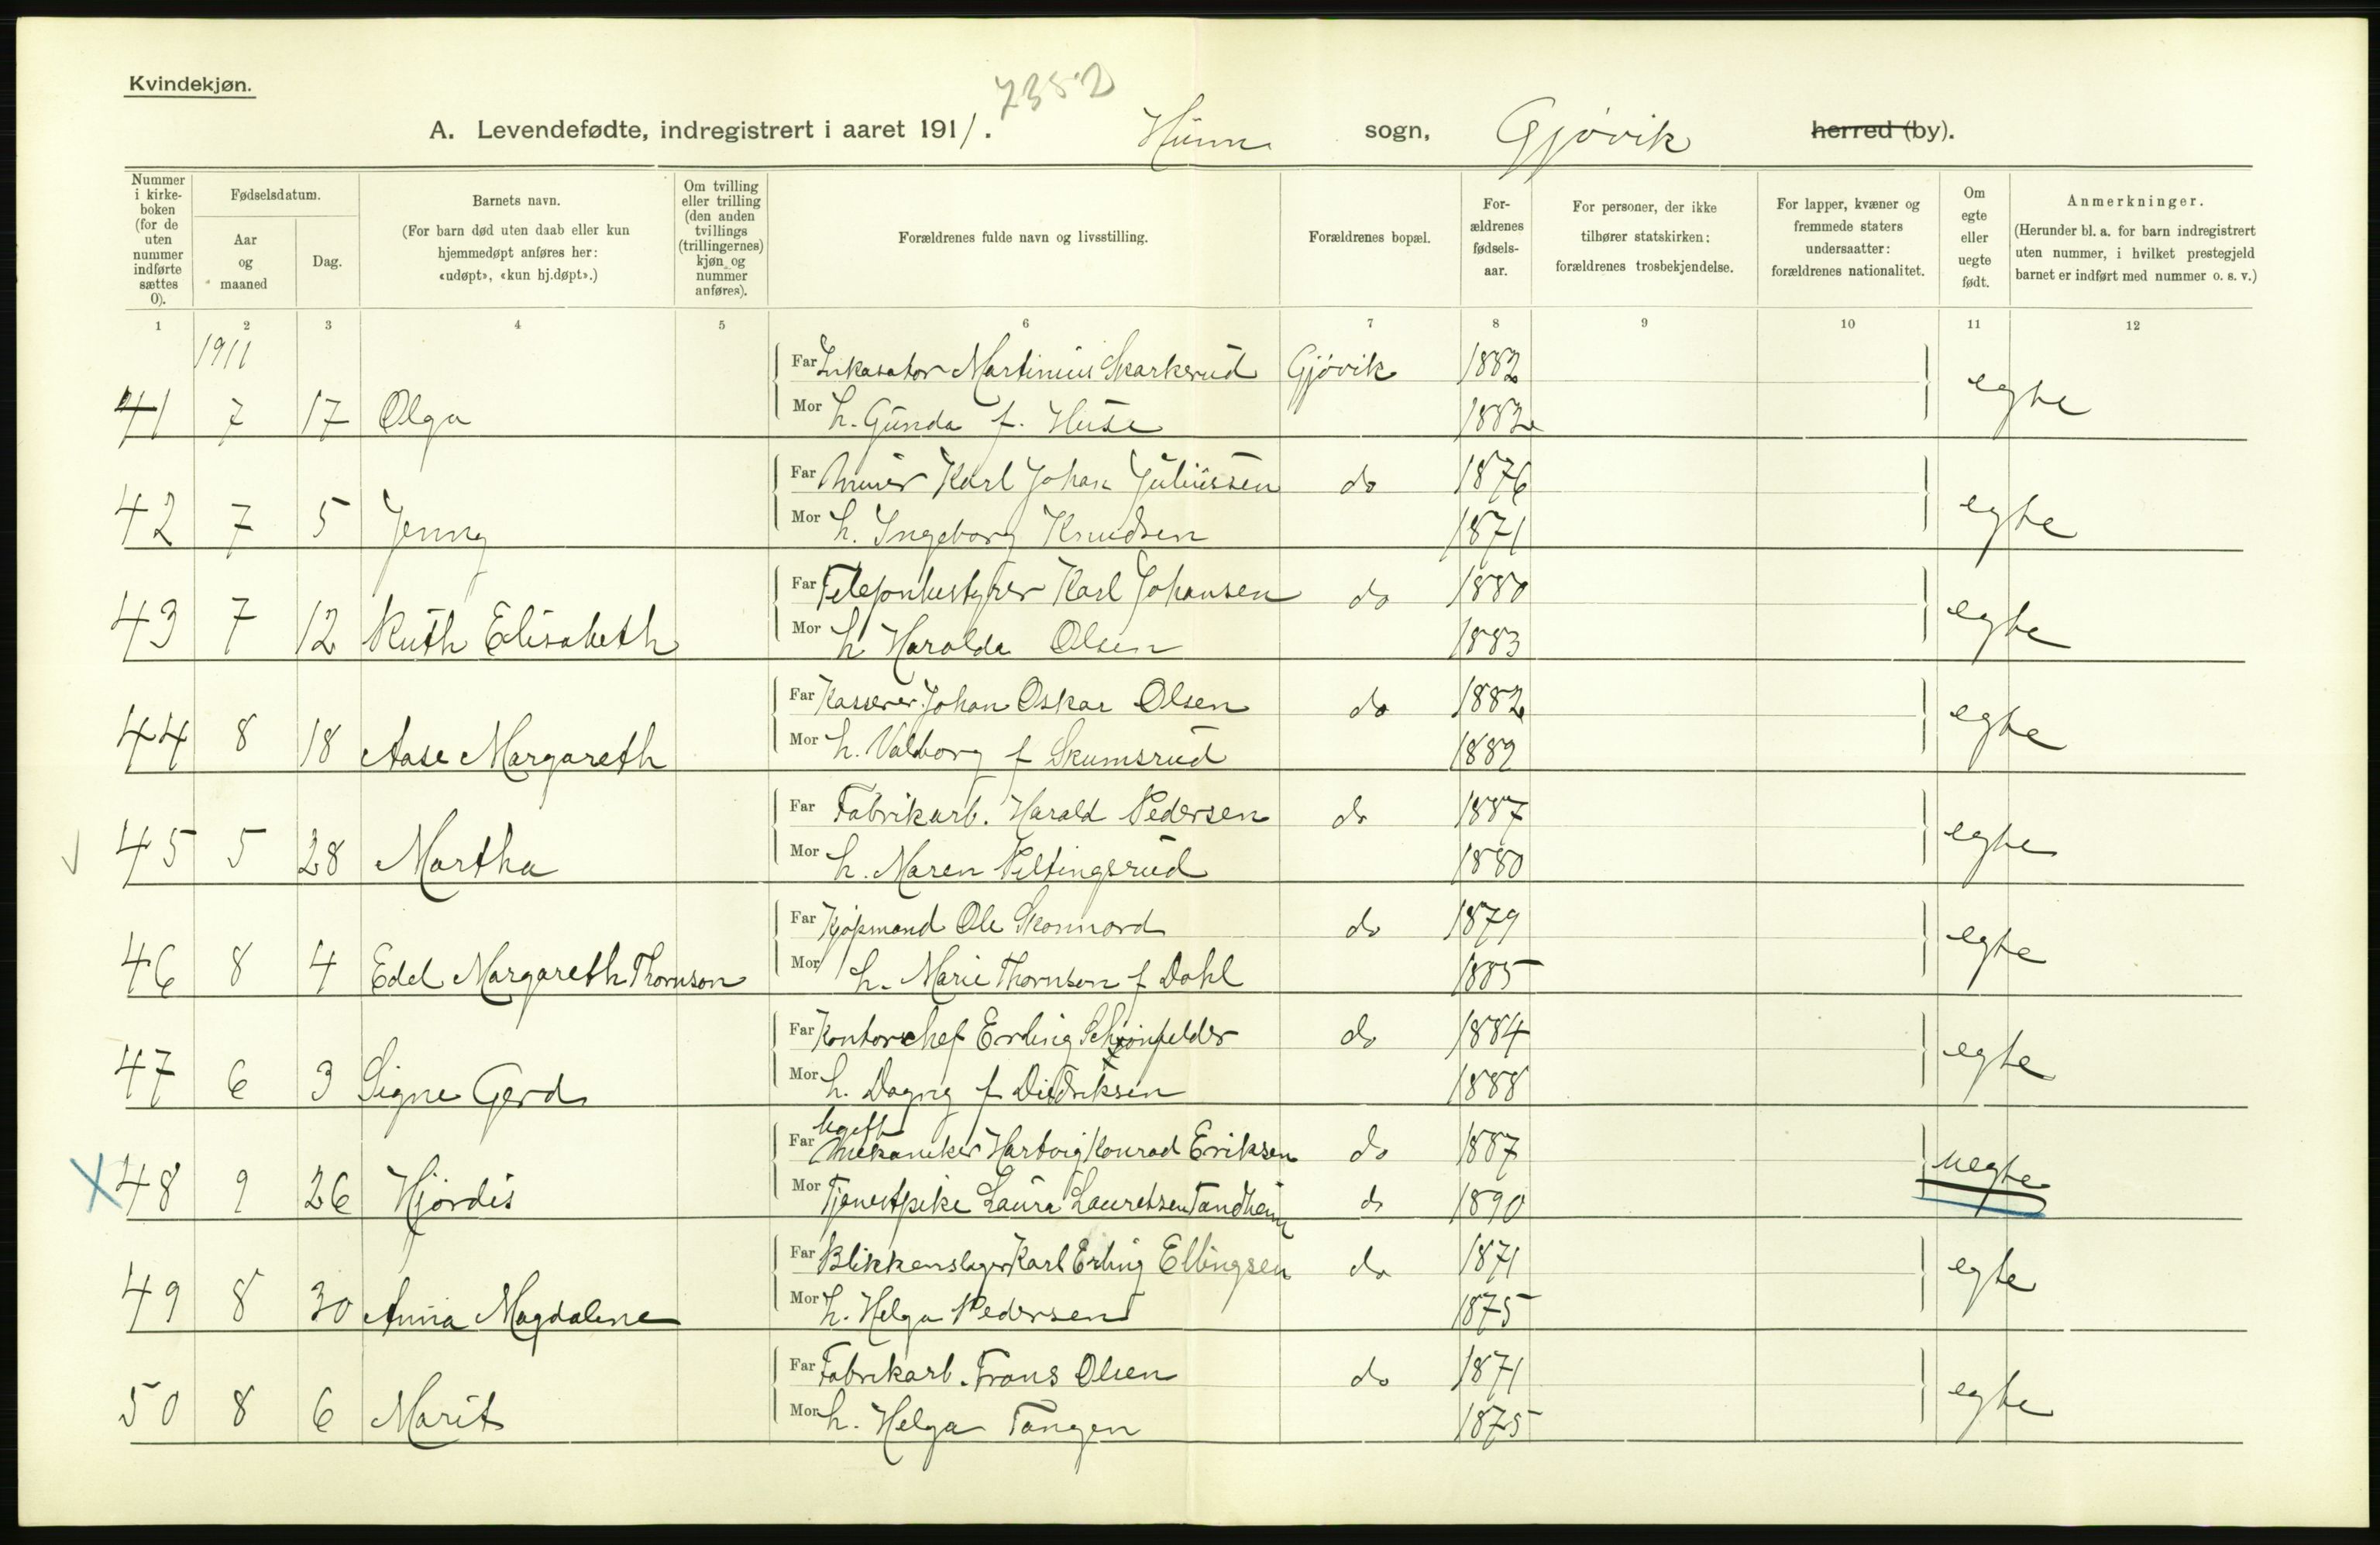 Kvindekjøn.
7352
A. Levendefødte, indregistrert i aaret 1911. Hunn sogn, Gjøvik herred (by).
Nummer i kirkeboken (for de uten nummer indførte sættes 0).
Fødselsdatum.
Aar og maaned
Dag.
Barnets navn.
(For barn død uten daab eller kun hjemmedøpt anføres her: «udøpt», «kun hj.døpt».)
Om tvilling eller trilling (den anden tvillings (trillingernes) kjøn og nummer anføres).
Forældrenes fulde navn og livsstilling.
Forældrenes bopæl.
Forældrenes fødselsaar.
For personer, der ikke tilhører statskirken: forældrenes trosbekjendelse.
For lapper, kvæner og fremmede staters undersaatter: forældrenes nationalitet.
Om egte eller uegte født.
Anmerkninger.
(Herunder bl. a. for barn indregistrert uten nummer, i hvilket prestegjeld barnet er indført med nummer o. s. v.)
1 2 3 4 5 6 7 8 9 10 11 12
1911
Far Inkasator Martinius Skarkerud Gjøvik 1882
41 7 17 Olga egte
Mor h. Gunda f. Huse 1882
Far Murer Karl Johan Juliussen do 1876
42 7 5 Jenny egte
Mor h. Ingeborg Knudsen 1871
Far Telefonbestyrer Karl Johansen do 1880
43 7 12 Ruth Elisabeth egte
Mor h. Haralda Olsen 1883
Far Kasserer Johan Oskar Olsen do 1882
44 8 18 Aase Margareth egte
Mor h. Valborg f Skumsrud 1882
Far Fabrikarb. Harald Pedersen do 1887
45 5 28 Martha egte
Mor h. Maren Peltingsrud 1880
Far Kjøpmand Ole Skonnord do 1879
46 8 4 Edel Margareth Thornson egte
Mor h. Marie Thornson f Dahl 1885
Far Kontorchef Erling Schiønfelder do 1884
47 6 3 Signe Gerd egte
Mor h. Dagny f Didriksen 1888
Far ugift Mekaniker Hartvig Konrad Eriksen do 1887
X 48 9 26 Hjørdis uegte
Mor Tjenestpike Laura Lauretsen Tandheim do 1890
Far Blikkenslager Karl Erling Ellingsen do 1871
49 8 30 Anna Magdalene egte
Mor h. Helga Pedersen 1875
Far Fabrikarb. Frans Olsen do 1871
50 8 6 Marit egte
Mor h. Helga Tangen 1875